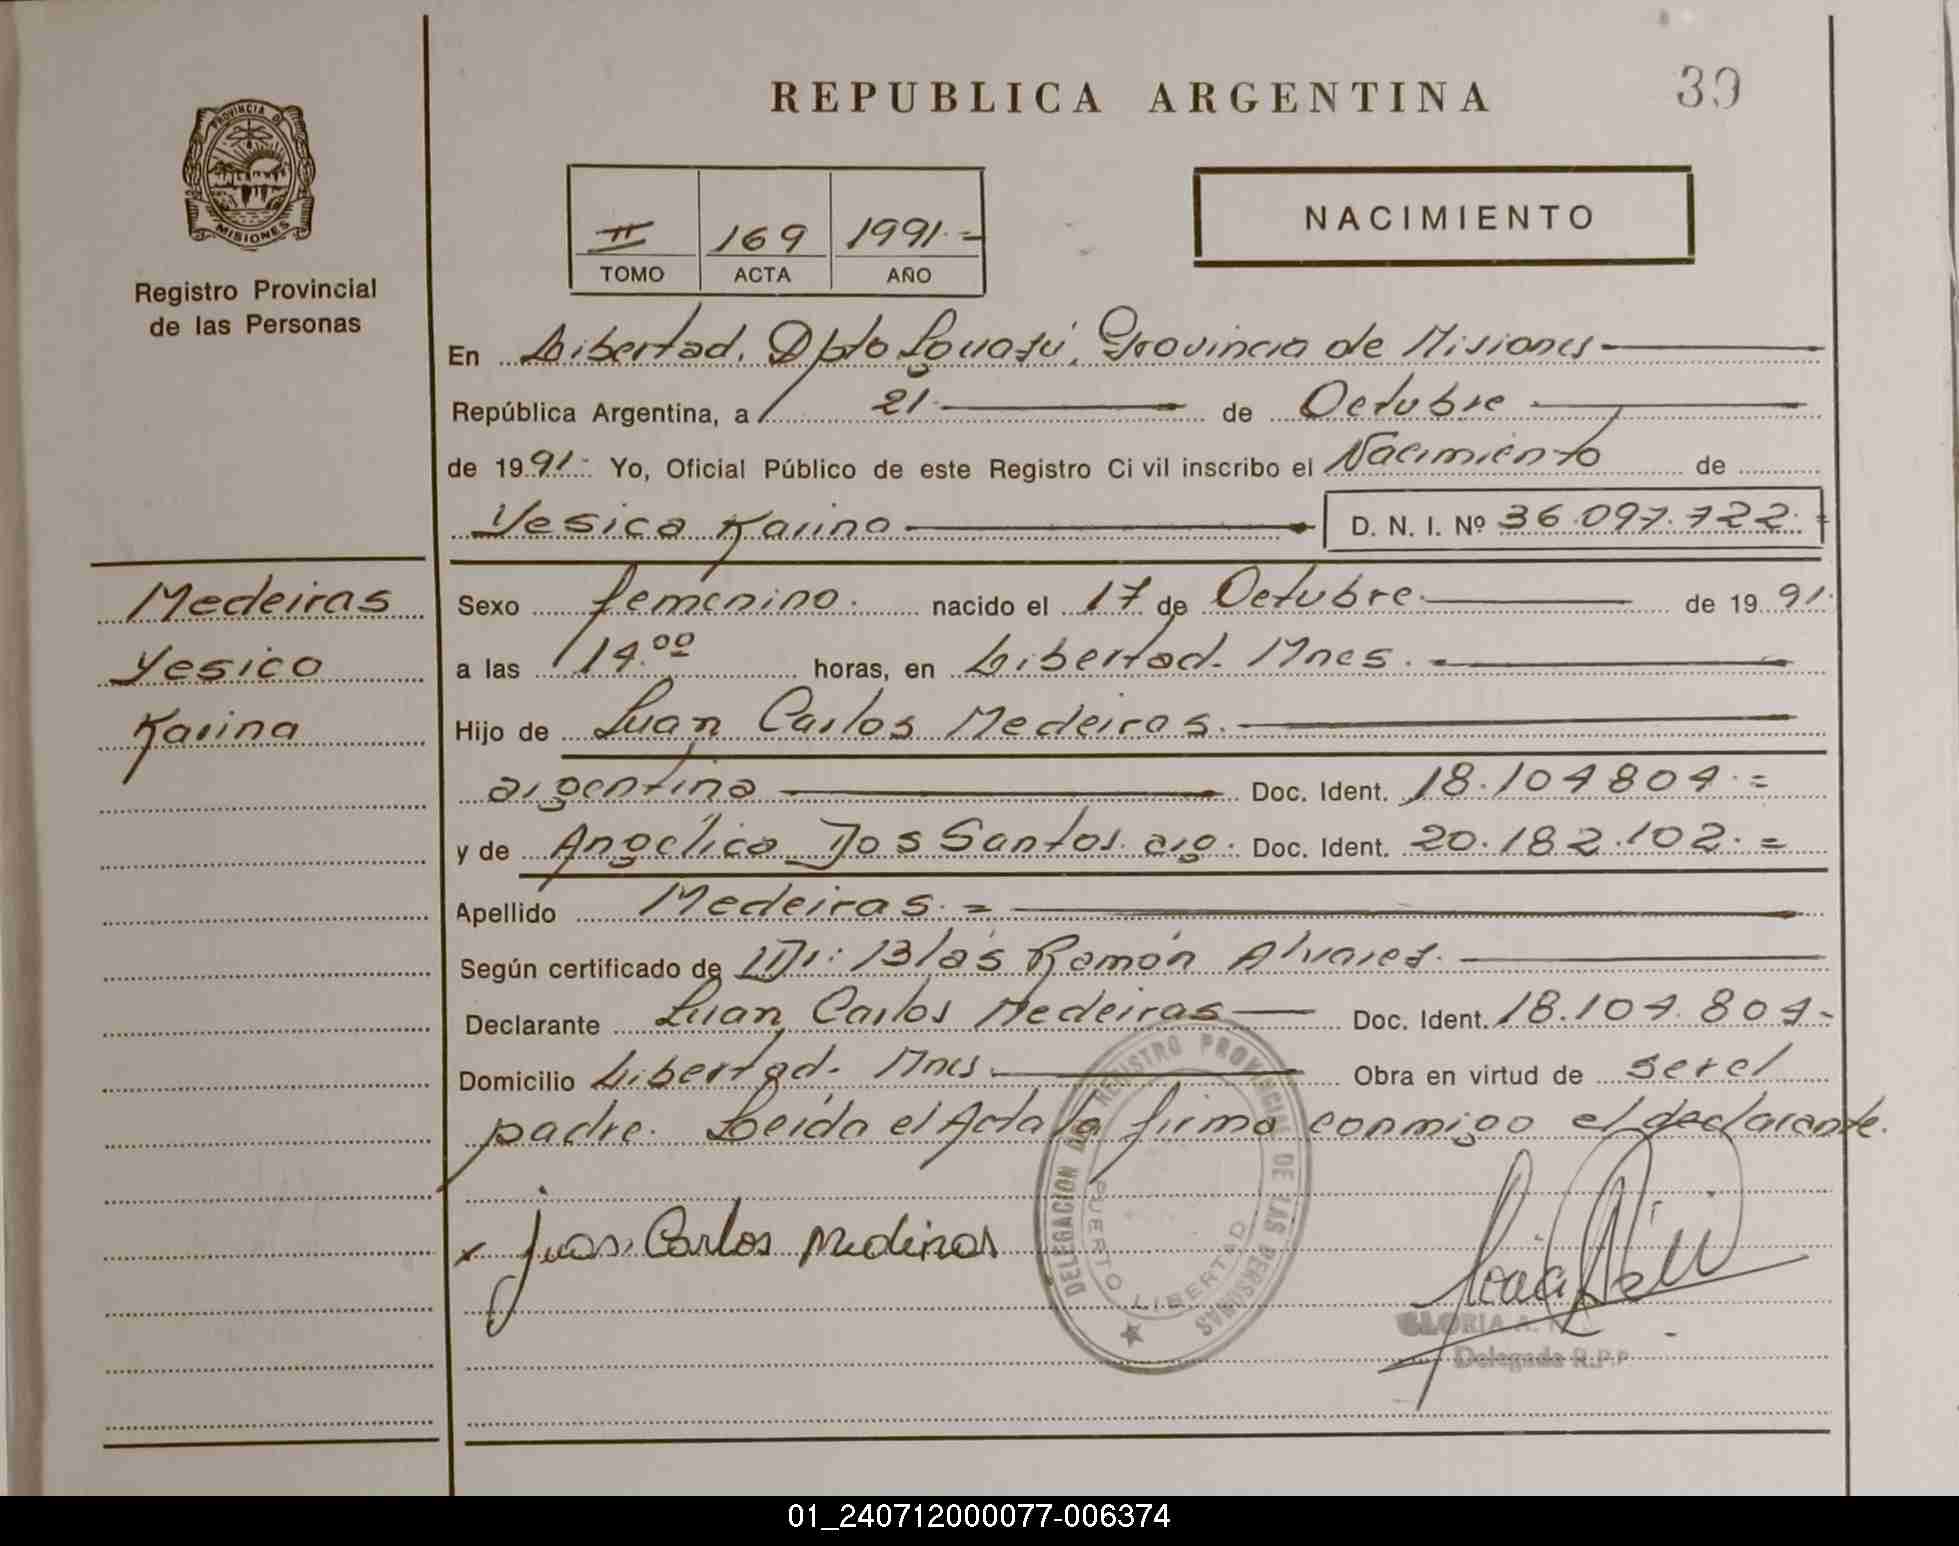 REPUBLICA ARGENTINA
39
PROVINCIA DE
MISIONES
Registro Provincial
de las Personas
II 169 1991.=
TOMO ACTA AÑO
NACIMIENTO
En Libertad. Dpto Iguazú, Provincia de Misiones
República Argentina, a 21 de Octubre
de 1991 Yo, Oficial Público de este Registro Civil inscribo el Nacimiento de
Yesica Karina D. N. I. Nº 36.097.722
Medeiras
Yesica
Karina
Sexo femenino. nacido el 17 de Octubre de 1991.
a las 14.00 horas, en Libertad. Mnes.
Hijo de Juan Carlos Medeiras.
argentina Doc. Ident. 18.104804.=
y de Angélica Dos Santos. arg. Doc. Ident. 20.182.102.=
Apellido Medeiras.=
Según certificado de Dr: Blás Ramón Alvarez.
Declarante Juan Carlos Medeiras Doc. Ident. 18.104.804-
Domicilio Libertad. Mnes. Obra en virtud de ser el
padre. Leída el Acta la firma conmigo el declarante.
DELEGACION DEL REGISTRO PROVINCIAL DE LAS PERSONAS
PUERTO LIBERTAD
x Juan Carlos Mediras
GLORIA A.
Delegada R.P.P
01_240712000077-006374